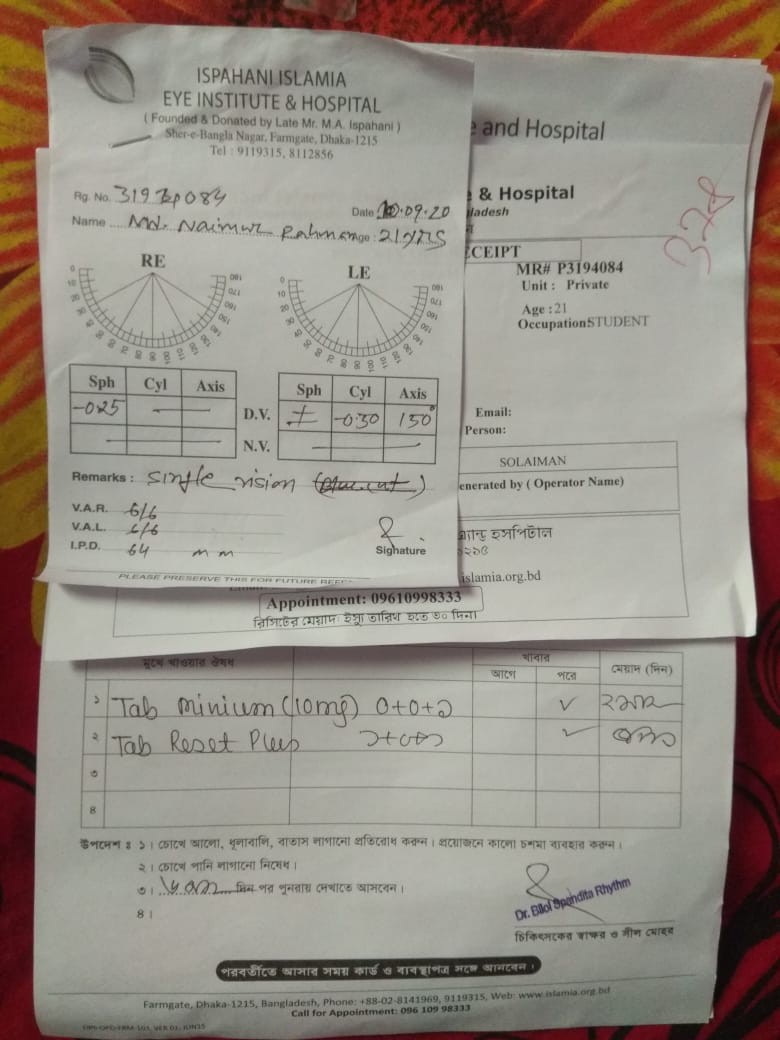 ISPAHANI ISLAMIA
EYE INSTITUTE & HOSPITAL
( Founded & Donated by Late Mr. M.A. Ispahani )
Sher-e-Bangla Nagar, Farmgate, Dhaka-1215
Tel : 9119315, 8112856
Rg. No.
Date 10.09.20
Name Md. Naimur Rahman Age : 21 yrs
RE
LE
Sph Cyl Axis
-0.25
D.V.
N.V.
Sph Cyl Axis
± -0.50 150°
Remarks : Single vision
V.A.R. 6/6
V.A.L. 6/6
I.P.D. 64 mm
Signature
PLEASE PRESERVE THIS FOR FUTURE
and Hospital
& Hospital
ladesh
CEIPT
MR# P3194084
Unit : Private
Age :21
OccupationSTUDENT
৩২৪
Email:
Person:
SOLAIMAN
enerated by ( Operator Name)
হসপিটাল
islamia.org.bd
Appointment: 09610998333
রিসিটের মেয়াদ: ইস্যু তারিখ হতে ৩০ দিন।
মুখে খাওয়ার ঔষধ
খাবার
আগে পরে
মেয়াদ (দিন)
১ Tab Minium (10mg) 0+0+১
২ Tab Reset Plus
৩
৪
উপদেশ ঃ ১। চোখে আলো, ধূলাবালি, বাতাস লাগানো প্রতিরোধ করুন। প্রয়োজনে কালো চশমা ব্যবহার করুন।
২। চোখে পানি লাগানো নিষেধ।
৩। দিন পর পুনরায় দেখাতে আসবেন।
৪।
Dr. Bilol Spandita Rhythm
চিকিৎসকের স্বাক্ষর ও সীল মোহর
পরবর্তীতে আসার সময় কার্ড ও ব্যবস্থাপত্র সঙ্গে আনবেন।
Farmgate, Dhaka-1215, Bangladesh, Phone: +88-02-8141969, 9119315, Web: www.islamia.org.bd
Call for Appointment: 096 109 98333